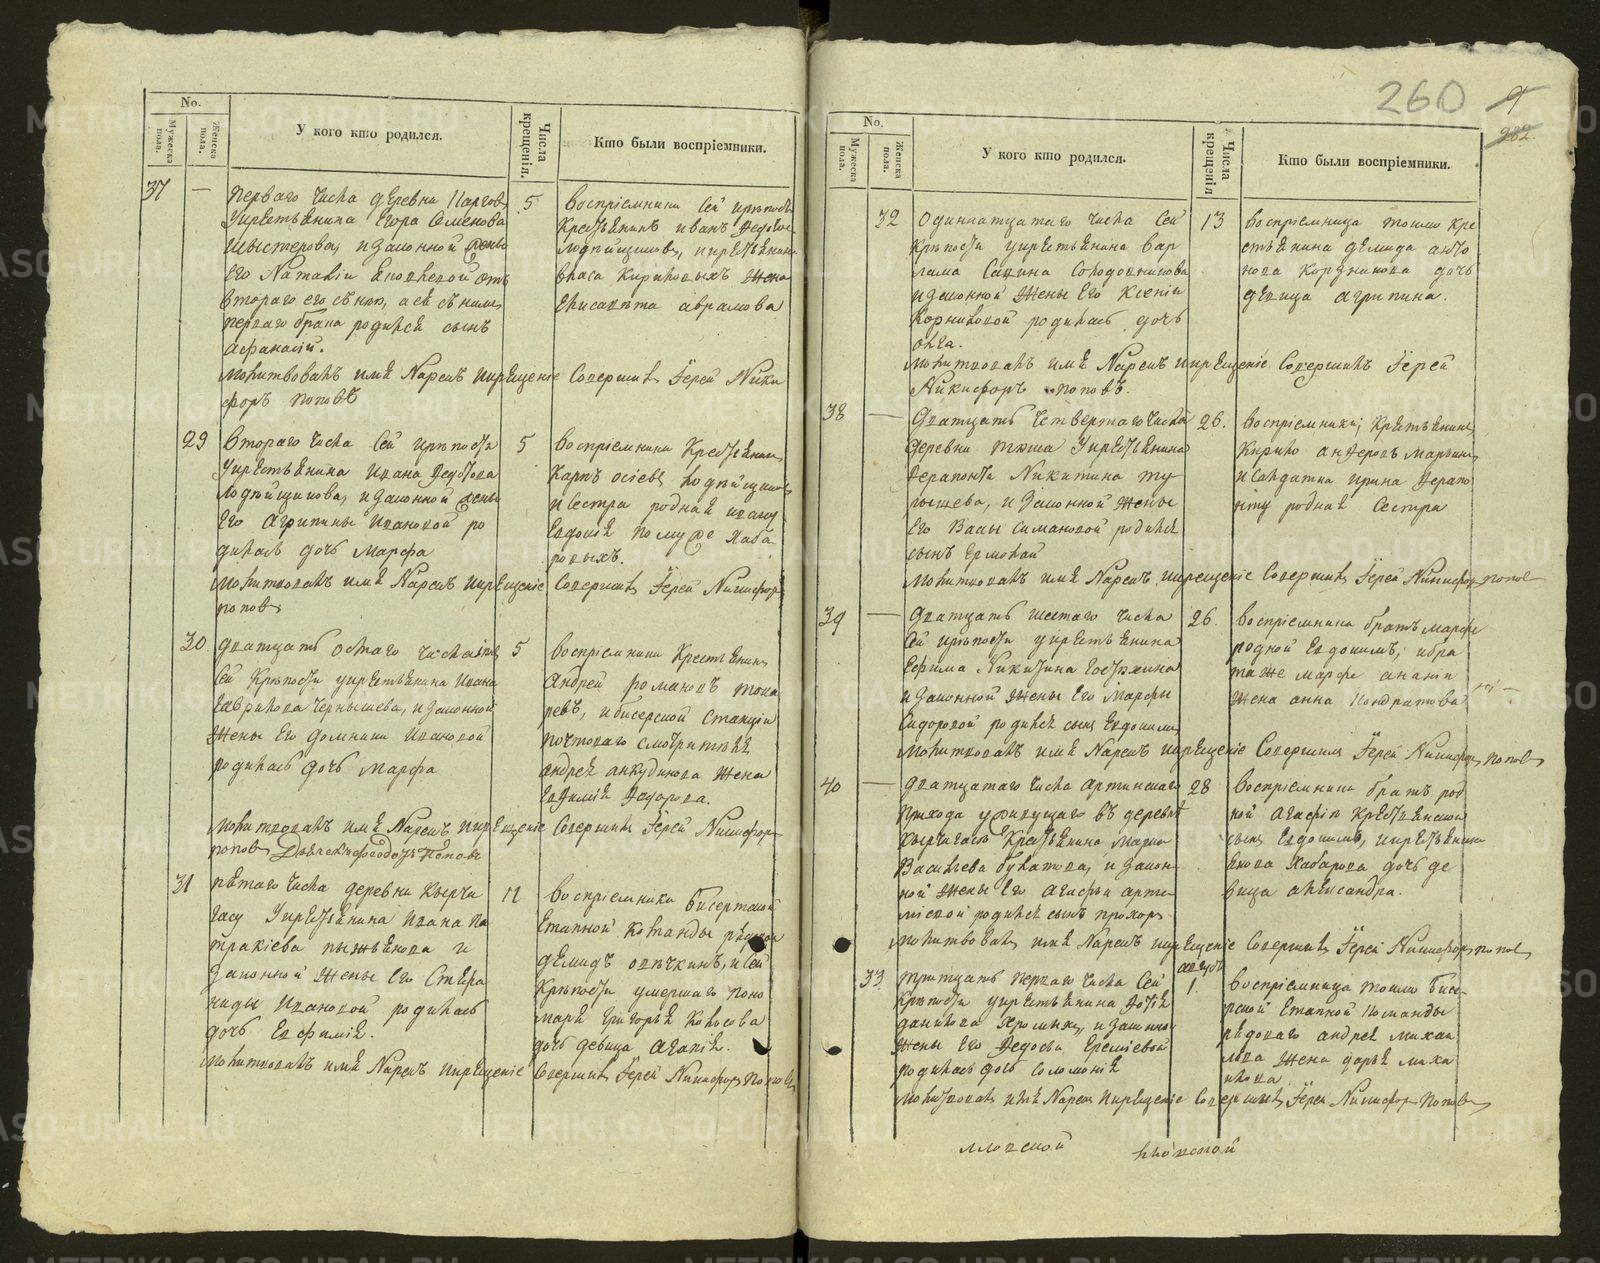 260
9
282
No.
Мужеска пола.
Женска пола.
У кого кто родился.
Числа крещенія.
Кто были воспріемники.
37 — перваго числа деревни
укрестьянина Егора Семенова
и законной жены
его Наталіи от
втораго его
перваго брака родился сынъ
афанасій.
5 воспріемники сей крѣпости
крестьянинъ иванъ Федотов
власа Кириловыхъ жена
Елисавѣта аврамова
молитвовалъ имя Нарекъ икрещеніе Совершилъ Іерей Ники
форъ поповъ
29 втораго числа Сей крѣпости
укрестьянина ивана Федотова
изаконной жены
его Агрипины ивановой ро
дилась дочь марфа
5 воспріемники Крестьянинъ
Карпъ осіевъ
и сестра родная ивану
Евдокія по мужѣ Хаба
ровыхъ.
молитвовалъ имя Нарекъ икрещеніе Совершилъ Іерей Никифоръ
поповъ
30 дватцать осмаго числа
сей Крѣпости укрестьянина ивана
гаврилова Чернышева, и законной
жены его домники ивановой
родилась дочь марфа
5 воспріемники Крестьянинъ
Андрей романовъ тока
ревъ, и бисерской станціи
почтоваго смотрителя
андрея анкудинова жена
Евфимія Федорова.
молитвовалъ имя Нарекъ икрещеніе Совершилъ Іерей Никифоръ
поповъ Дьячекъ Феодоръ Поповъ
31 пятаго числа деревни кырчи
гасу укрестьянина ивана па
тракіева пыжьянова и
законной жены его Степа
ниды ивановой родилась
дочь Евфимія.
12 воспріемники бисертской
етапной команды рядовой
демидъ овѣчкинъ, и сей
крѣпости умершаго поно
маря григорья колосова
дочь девица агапія.
молитвовалъ имя Нарекъ икрещеніе Совершилъ Іерей Никифоръ поповъ
No.
Мужеска пола.
Женска пола.
У кого кто родился.
Числа крещеніл
Кто были воспріемники.
32 одиннатцатаго числа Сей
Крѣпости укрестьянина вар
лама Савина Солодовникова
изаконной жены его Ксеніи
Корниловой родилась дочь
олга.
13 воспріемница токмо кре
стьянина демида анто
нова дочь
девица агрипина.
молитвовалъ имя Нарекъ икрещеніе Совершилъ Іерей
Никифоръ поповъ.
38 — дватцать четвертаго числа
деревни укрестьянина
Ферапонта Никитина ту
рышева, и законной жены
его Васы симановой родился
сынъ Ермолай
26. воспріемники, Крестьянинъ
Кирило
исалдатка ирина Ферапо
нту родная сестра
молитвовалъ имя Нарекъ икрещеніе Совершилъ Іерей Никифоръ поповъ
39 — дватцать шестаго числа
сей крѣпости укрестьянина
Ефима Никитина
изаконной жены его марфы
Сидоровой родился сынъ Евдокимъ
26 воспріемники братъ марфе
родной Евдокимъ, ибра
жена анна Кондратова
молитвовалъ имя Нарекъ икрещеніе Совершилъ Іерей Никифоръ поповъ
40 — дватцатаго числа артинскаго
прихода живущаго въ деревнѣ
кырчигасѣ Крестьянина марка
Васильева булатова, и закон
ной жены его агафьи арте
міевой родился сынъ прохоръ
28 воспріемники братъ род
ной агафіи крестьянской
сынъ Евдокимъ, икрестьянина
якова Хабарова дочь де
вица александра.
молитвовалъ имя Нарекъ икрещеніе Совершилъ Іерей Никифоръ поповъ
33 тритцать перваго числа Сей
Крѣпости укрестьянина Фотія
данилова и законной
жены его Федосьи Еремѣевой
родилась дочь Соломонія
августа
1. воспріемница токмо бисе
рской етапной команды
рядоваго андрея михаи
лова жена дарья миха
илова
молитвовалъ имя Нарекъ икрещеніе Совершилъ Іерей Никифоръ поповъ